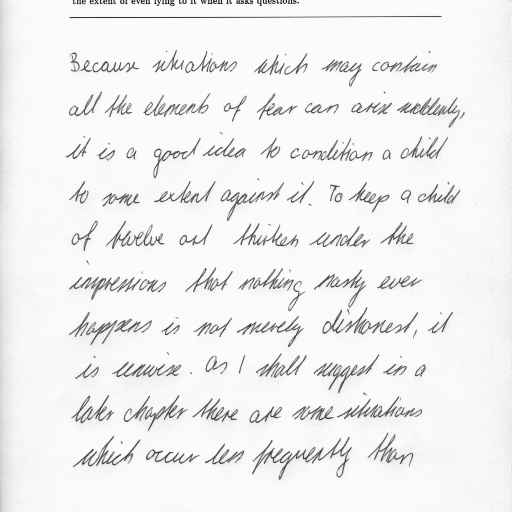 the extent of even lying to it when it asks questions.
Because situations which may contain
all the elements of fear can arise suddenly,
it is a good idea to condition a child
to some extent against it. To keep a child
of twelve or thirteen under the
impressions that nothing nasty ever
happens is not merely dishonest, it
is unwise. As I shall suggest in a
later chapter there are some situations
which occur less frequently than